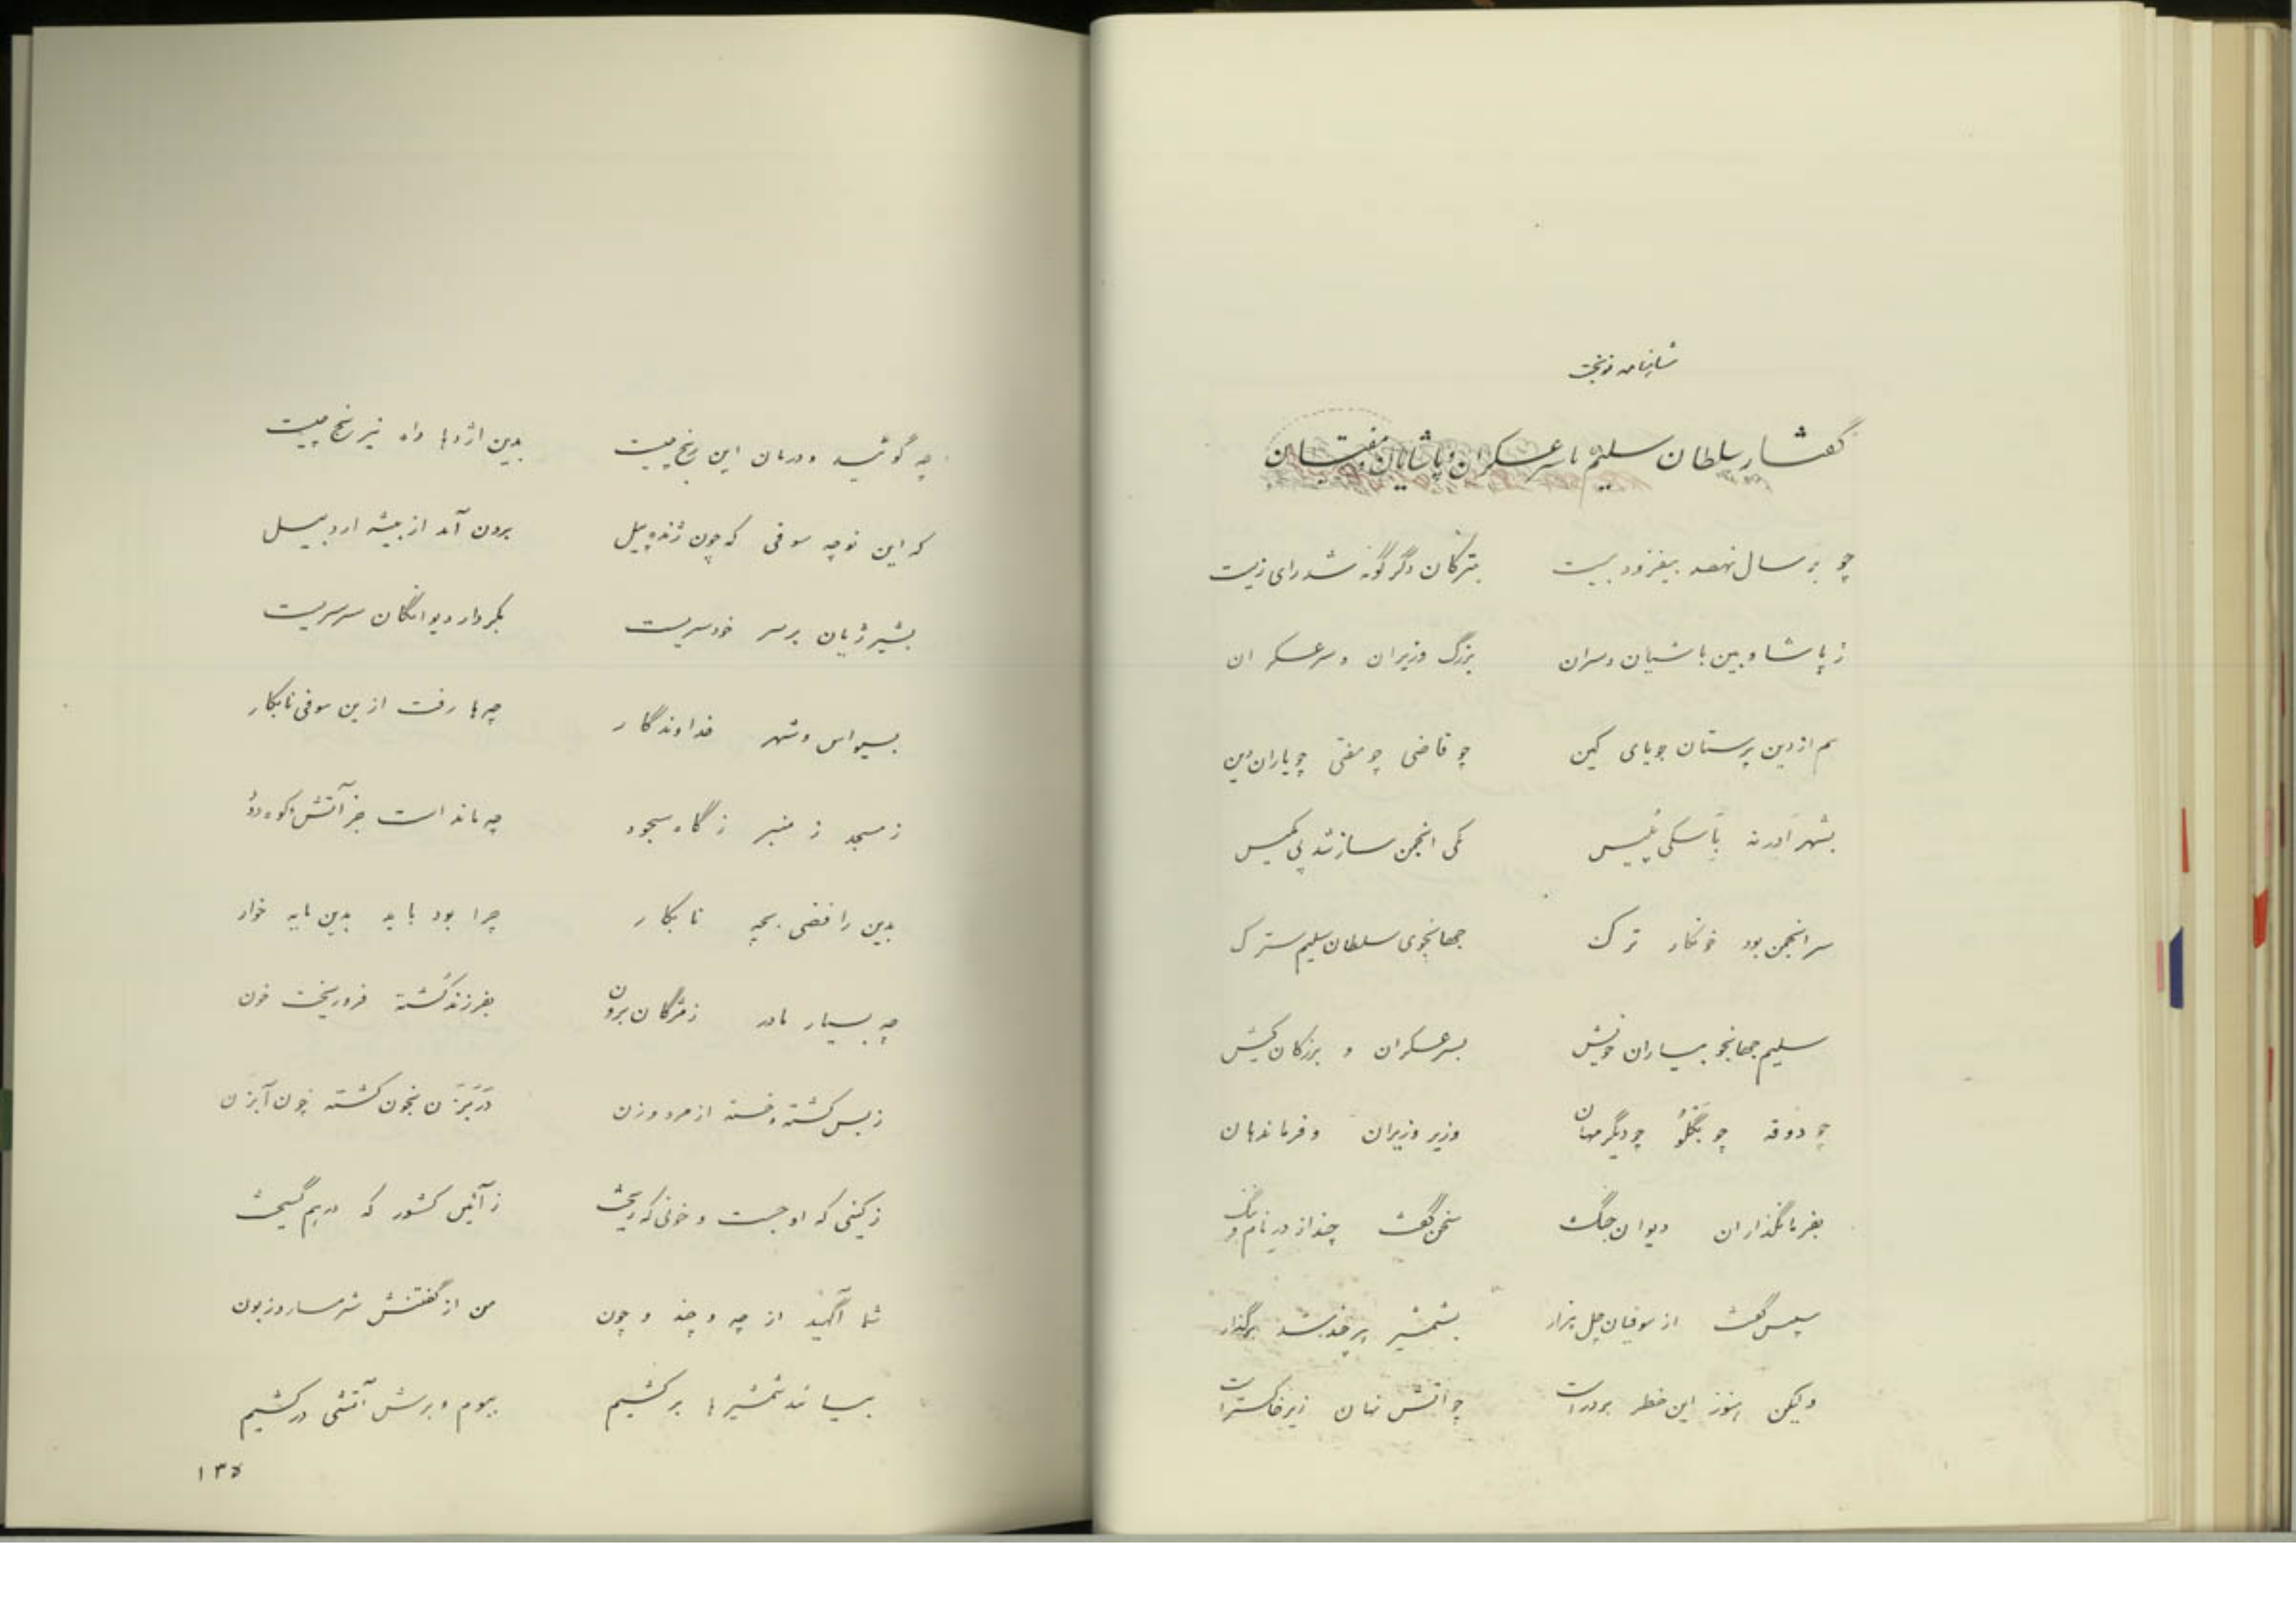 شاهنامه نوبخت
گفتار سلطان سلیم با سرعسکران و پاشایان و مفتیان
چو بر سال نهصد بیفزود بیست بترکان دگرگونه شد رای زیست
ز پاشا و بین باشیان و سران بزرگ وزیران و سرعسکران
هم از دین پرستان جویای کین چو قاضی چو مفتی چو یاران دین
بشهر ادرنه یکی انجمن سازند
سر انجمن بود خونکار ترک جهانجوی سلطان سلیم سترک
سلیم جهانجو بیاران خویش بسرعسکران و بزرگان کیش
چو دوقه چو چو دیگر مهان وزیر وزیران و فرماندهان
بفرمانگذاران دیوان جنگ سخن گفت چند از در نام و ننگ
سپس گفت از سوفیان چل هزار بشمشیر هر چند شد برگذار
ولیکن هنوز این خطر بردر است چو آتش نهان زیر خاکستر است
چه گوئید و درمان این رنج چیست بدین اژدها داه نیرنج چیست
که این نوچه سوفی که چون ژنده پیل برون آمد از بیشه اردبیل
بشیر ژیان بر سر خودسریست بکردار دیوانگان سرسریست
بسیواس و شهر خداوندگار چه ها رفت ازین سوفی نابکار
ز مسجد ز منبر ز گاه سجود چه مانده است جز آتش و دود
بدین رافضی بچه نابکار چرا بود باید بدین مایه خوار
چه بسیار مادر ز مژگان برون بفرزند کشته فرو ریخت خون
ز بس کشته و خسته از مرد و زن بخون گشته چون آبزن
ز کینی که او جست و خونی که ریخت ز آئین کشور که درهم گسیخت
شما آگهید از چه و چند و چون من از گفتنش شرمسار و زبون
بیائید شمشیرها برکشیم ببوم و برش آتشی درکشیم
۱۳۵